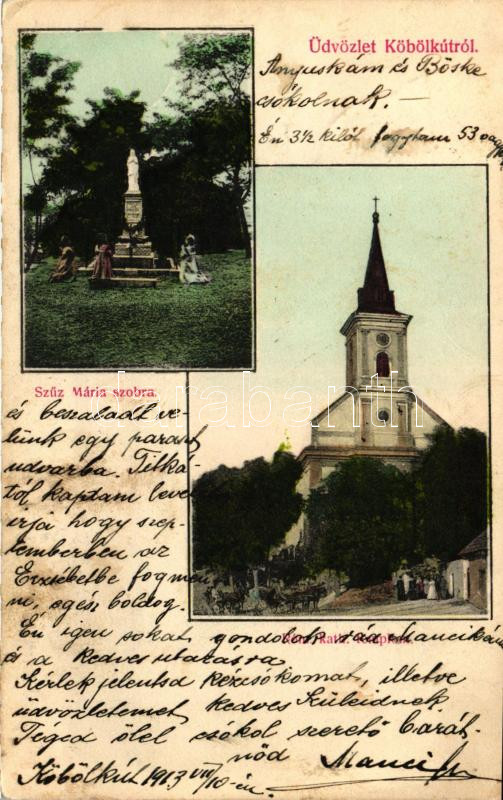 Üdvözlet Köbölkútról.
Anyuskám és Böske
csókolnak. —
Én 3½ kilót fogytam 53 vagyok
Szűz Mária szobra.
és beszaladt ve-
lünk egy paraszt
udvarba. Titká-
tól kaptam levelet
írja hogy szep-
temberben az
Erzsébetbe fog men-
ni, egész boldog.
Én igen sokat gondolok rád Mancikám
Róm. kath. templom.
és a kedves utazásra
Kérlek jelentsd kézcsókomat, illetve
üdvözletemet kedves Szüleidnek.
Téged ölel csókol szerető barát-
nőd Manci
Köbölkút 1913 VII/10-én.
karabanth